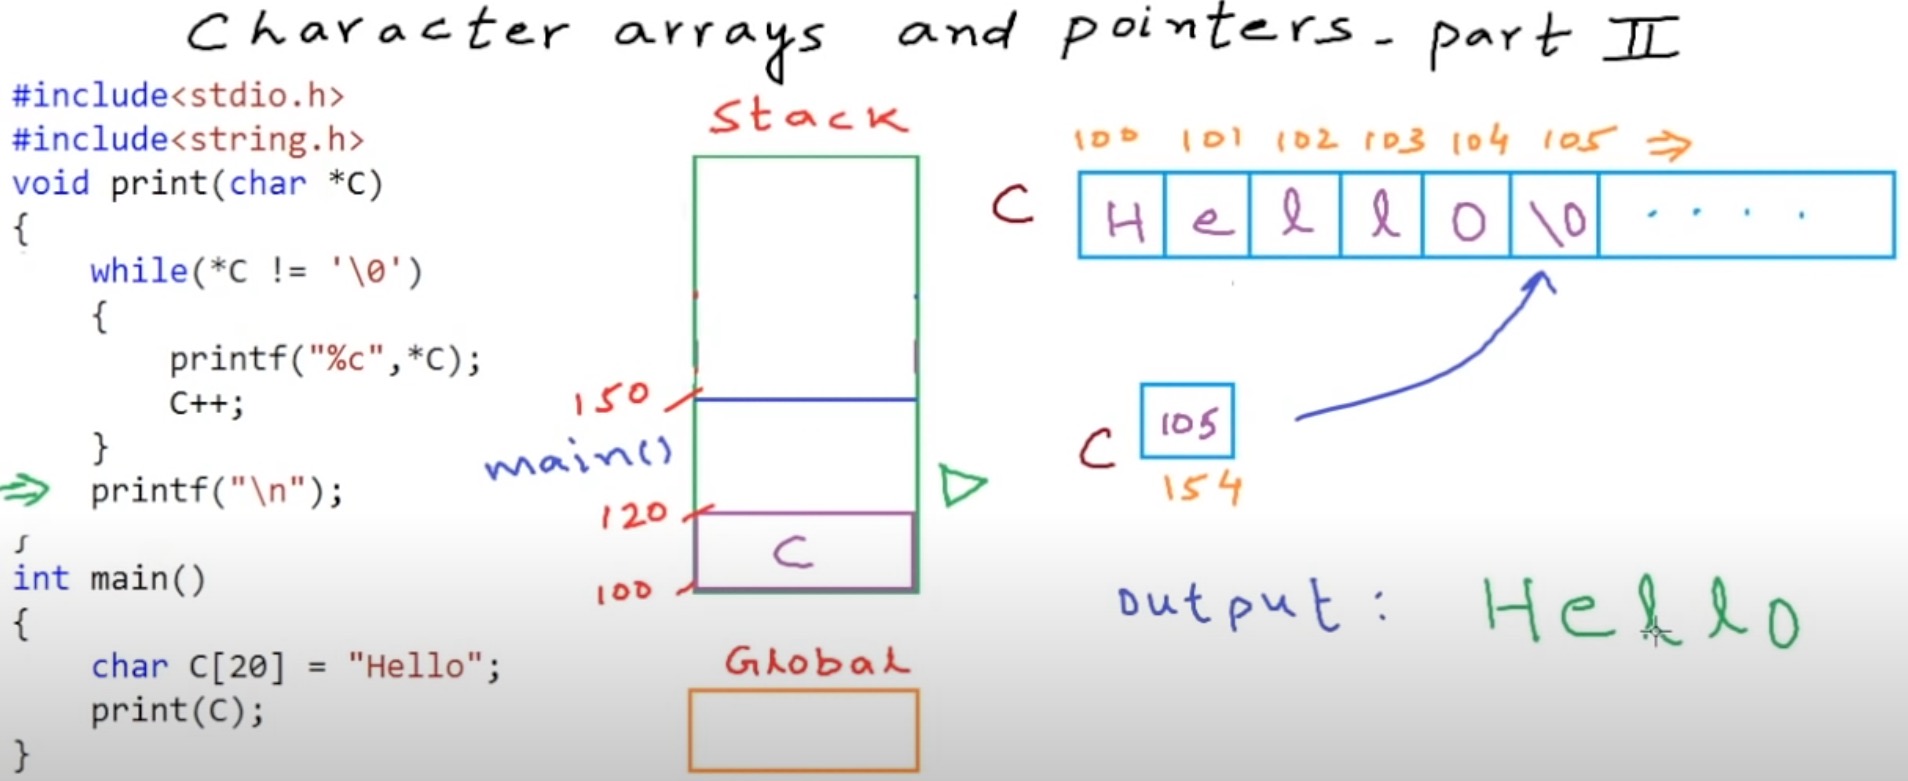 Character arrays and pointers - part II
#include<stdio.h>
#include<string.h>
void print(char *C)
{
while(*C != '\0')
{
printf("%c",*C);
C++;
}
printf("\n");
}
int main()
{
char C[20] = "Hello";
print(C);
}
Stack
150
main()
120
C
100
Global
100 101 102 103 104 105
C H e l l o \0 . . . .
C 105
154
output : Hello